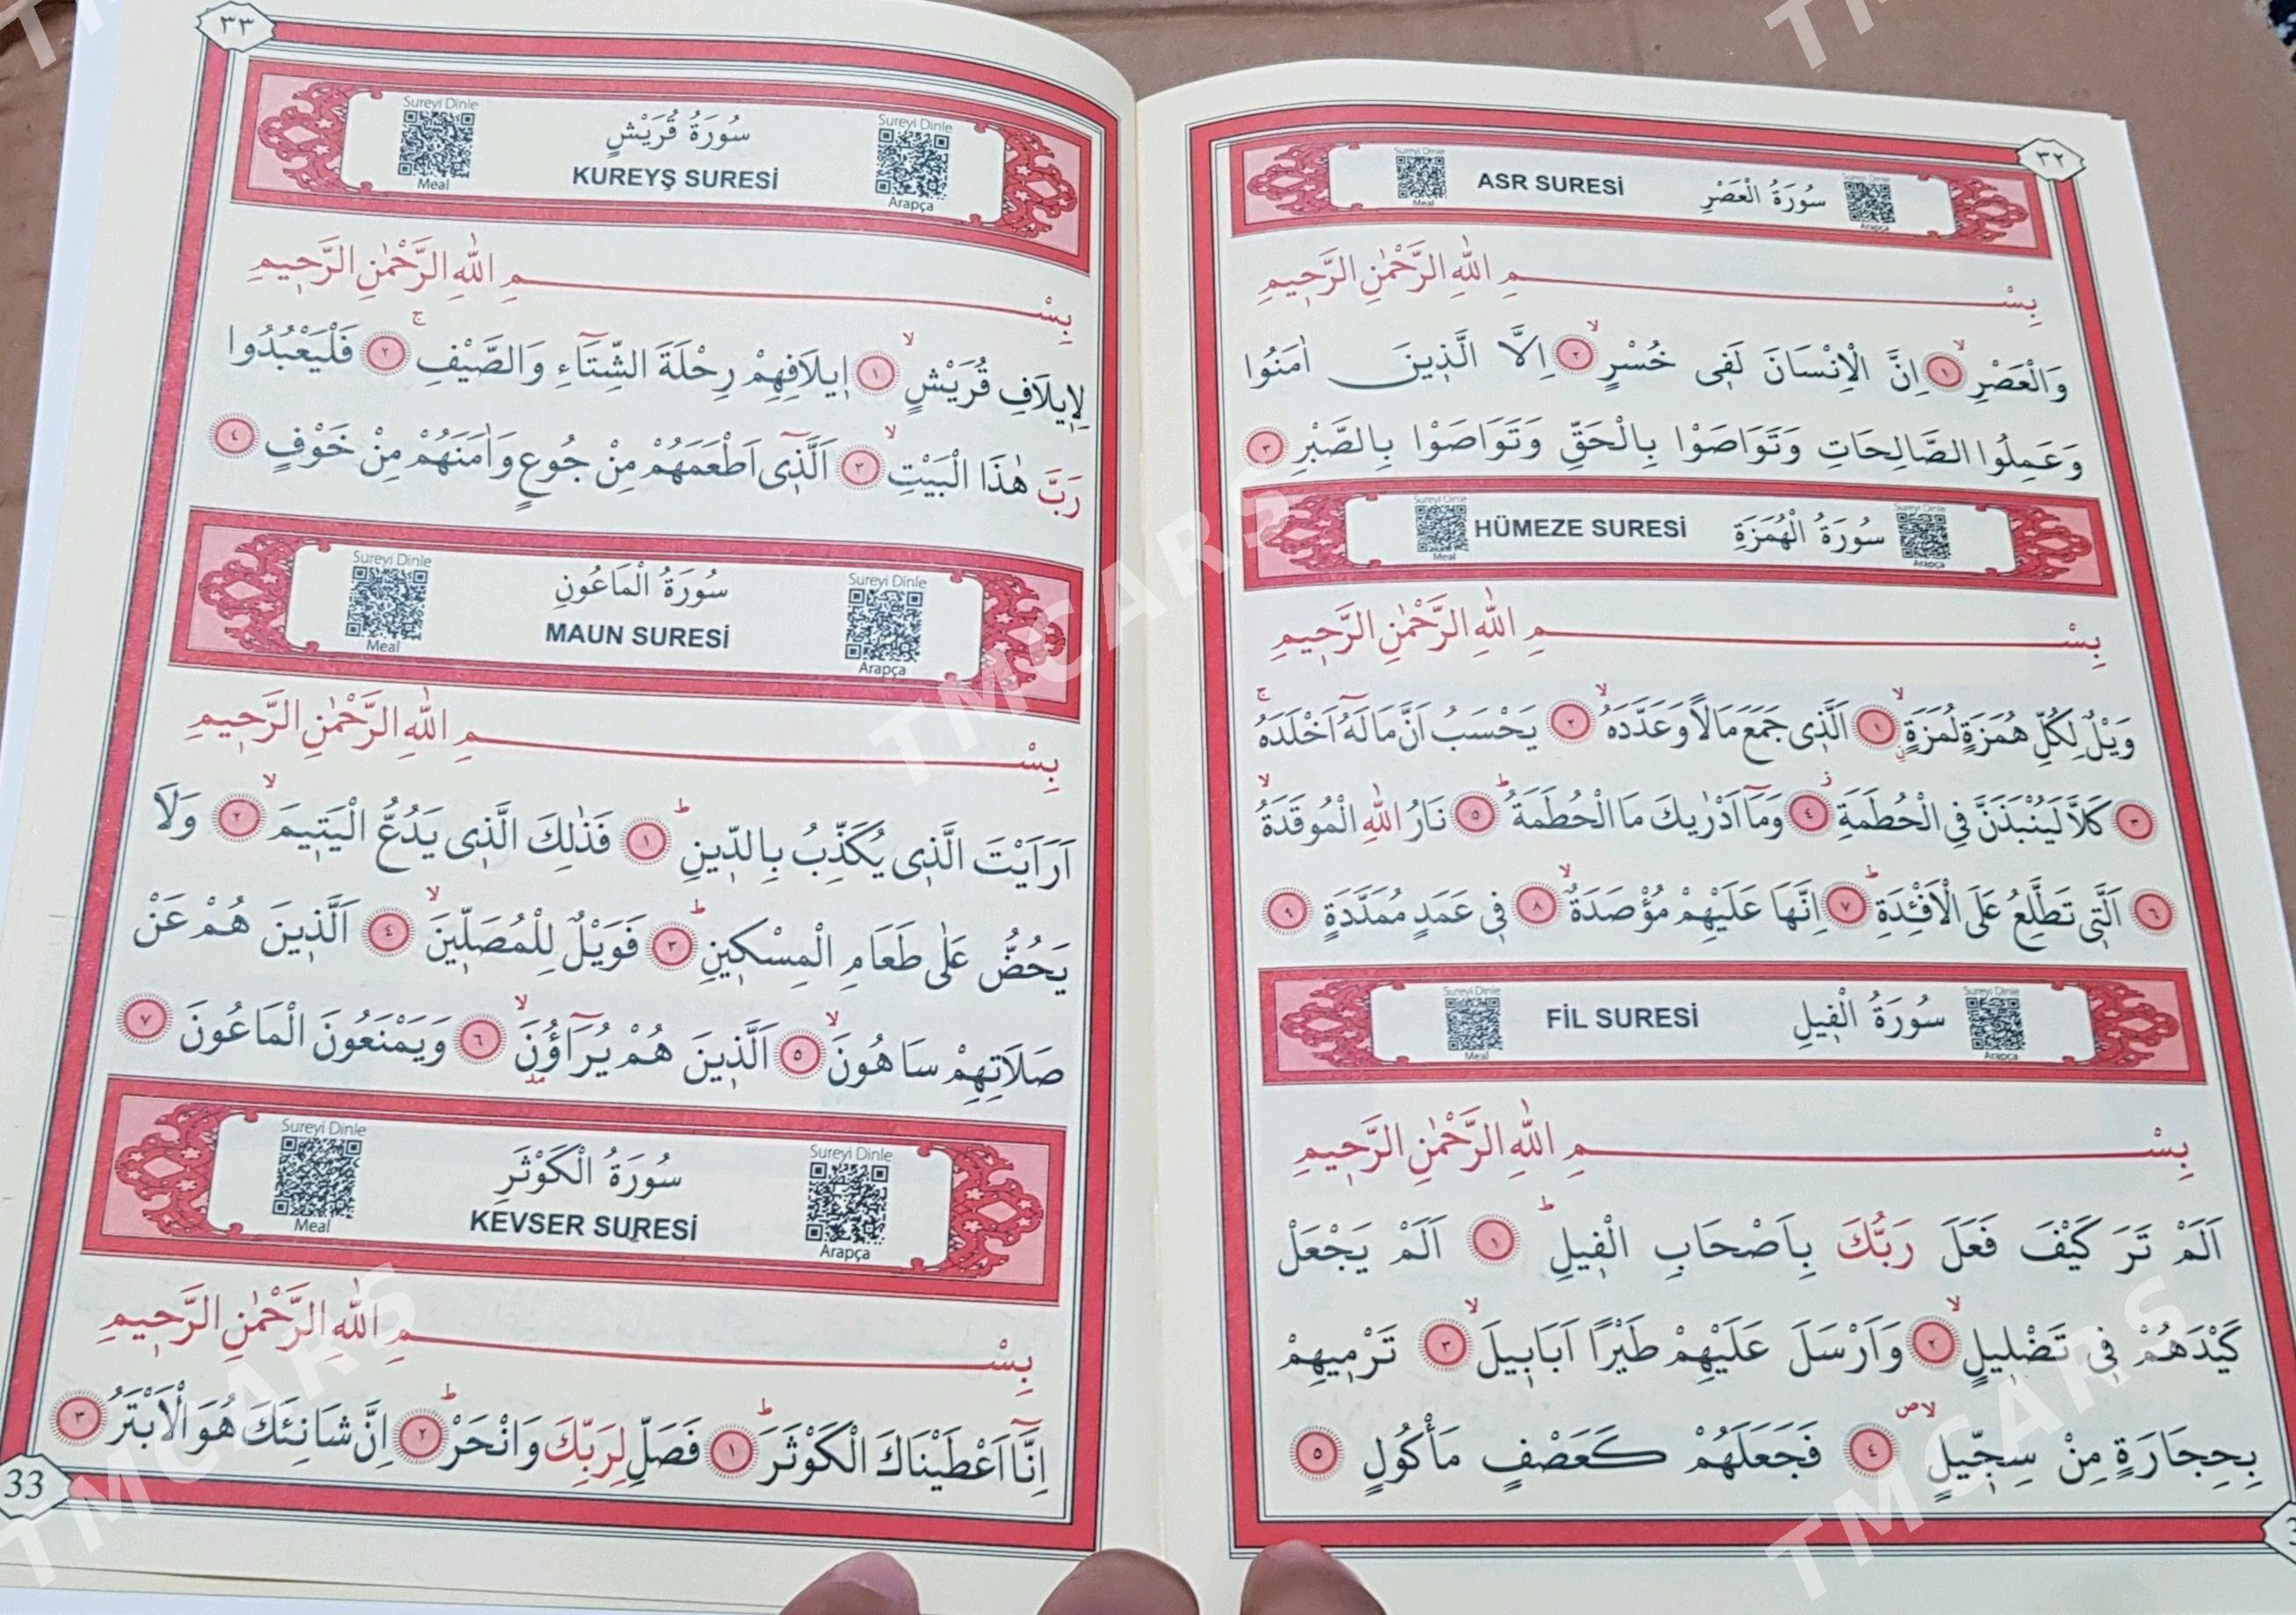 ٣٢
Sureyi Dinle
Meal
ASR SURESİ
سُورَةُ الْعَصْرِ
Sureyi Dinle
Arapça
بِسْمِ اللّٰهِ الرَّحْمٰنِ الرَّحِيمِ
وَالْعَصْرِ ١ اِنَّ الْاِنْسَانَ لَفِى خُسْرٍ ٢ اِلَّا الَّذِينَ اٰمَنُوا
وَعَمِلُوا الصَّالِحَاتِ وَتَوَاصَوْا بِالْحَقِّ وَتَوَاصَوْا بِالصَّبْرِ ٣
Sureyi Dinle
Meal
HÜMEZE SURESİ
سُورَةُ الْهُمَزَةِ
Sureyi Dinle
Arapça
بِسْمِ اللّٰهِ الرَّحْمٰنِ الرَّحِيمِ
وَيْلٌ لِكُلِّ هُمَزَةٍ لُمَزَةٍ ١ اَلَّذِى جَمَعَ مَالًا وَعَدَّدَهُ ٢ يَحْسَبُ اَنَّ مَالَهُٓ اَخْلَدَهُ
٣ كَلَّا لَيُنْبَذَنَّ فِى الْحُطَمَةِ ٤ وَمَٓا اَدْرٰيكَ مَا الْحُطَمَةُ ٥ نَارُ اللّٰهِ الْمُوقَدَةُ
٦ اَلَّتِى تَطَّلِعُ عَلَى الْاَفْئِدَةِ ٧ اِنَّهَا عَلَيْهِمْ مُؤْصَدَةٌ ٨ فِى عَمَدٍ مُمَدَّدَةٍ ٩
Sureyi Dinle
Meal
FİL SURESİ
سُورَةُ الْفِيلِ
Sureyi Dinle
Arapça
بِسْمِ اللّٰهِ الرَّحْمٰنِ الرَّحِيمِ
اَلَمْ تَرَ كَيْفَ فَعَلَ رَبُّكَ بِاَصْحَابِ الْفِيلِ ١ اَلَمْ يَجْعَلْ
كَيْدَهُمْ فِى تَضْلِيلٍ ٢ وَاَرْسَلَ عَلَيْهِمْ طَيْرًا اَبَابِيلَ ٣ تَرْمِيهِمْ
بِحِجَارَةٍ مِنْ سِجِّيلٍ ٤ فَجَعَلَهُمْ كَعَصْفٍ مَأْكُولٍ ٥
٣٣
Sureyi Dinle
Meal
سُورَةُ قُرَيْشٍ
KUREYŞ SURESİ
Sureyi Dinle
Arapça
بِسْمِ اللّٰهِ الرَّحْمٰنِ الرَّحِيمِ
لِاِيلَافِ قُرَيْشٍ ١ اِيلَافِهِمْ رِحْلَةَ الشِّتَٓاءِ وَالصَّيْفِ ٢ فَلْيَعْبُدُوا
رَبَّ هٰذَا الْبَيْتِ ٣ اَلَّذِٓى اَطْعَمَهُمْ مِنْ جُوعٍ وَاٰمَنَهُمْ مِنْ خَوْفٍ ٤
Sureyi Dinle
Meal
سُورَةُ الْمَاعُونِ
MAUN SURESİ
Sureyi Dinle
Arapça
بِسْمِ اللّٰهِ الرَّحْمٰنِ الرَّحِيمِ
اَرَاَيْتَ الَّذِى يُكَذِّبُ بِالدِّينِ ١ فَذٰلِكَ الَّذِى يَدُعُّ الْيَتِيمَ ٢ وَلَا
يَحُضُّ عَلٰى طَعَامِ الْمِسْكِينِ ٣ فَوَيْلٌ لِلْمُصَلِّينَ ٤ اَلَّذِينَ هُمْ عَنْ
صَلَاتِهِمْ سَاهُونَ ٥ اَلَّذِينَ هُمْ يُرَٓاؤُنَ ٦ وَيَمْنَعُونَ الْمَاعُونَ ٧
Sureyi Dinle
Meal
سُورَةُ الْكَوْثَرِ
KEVSER SURESİ
Sureyi Dinle
Arapça
بِسْمِ اللّٰهِ الرَّحْمٰنِ الرَّحِيمِ
اِنَّٓا اَعْطَيْنَاكَ الْكَوْثَرَ ١ فَصَلِّ لِرَبِّكَ وَانْحَرْ ٢ اِنَّ شَانِئَكَ هُوَ الْاَبْتَرُ ٣
33
TMCARS
TMCARS
TMCARS